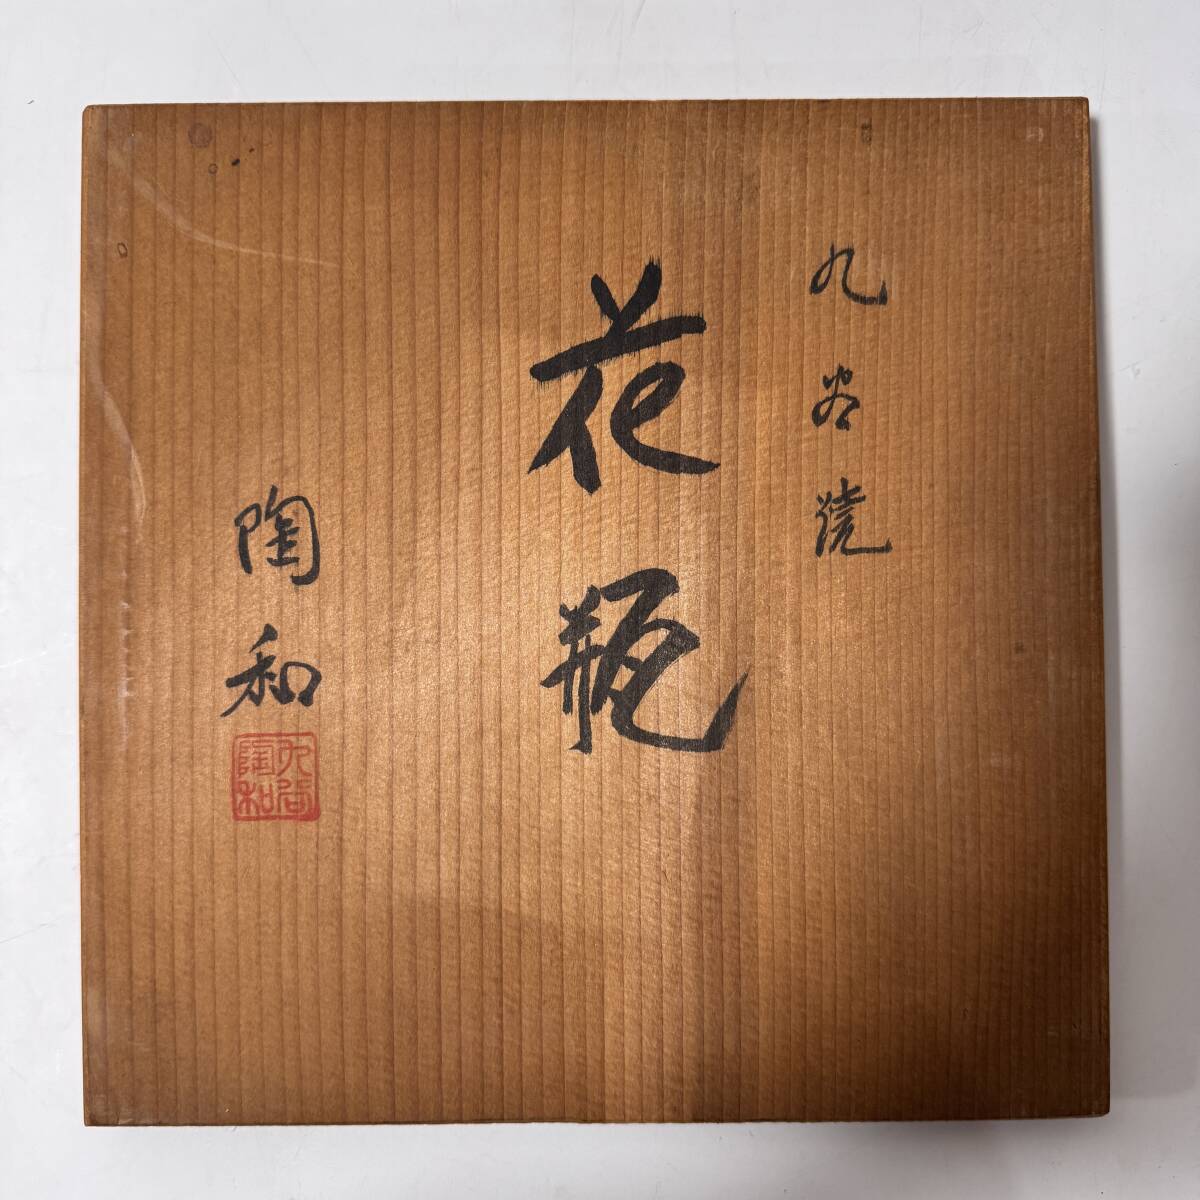 九谷焼
花瓶
陶和
九谷
陶和